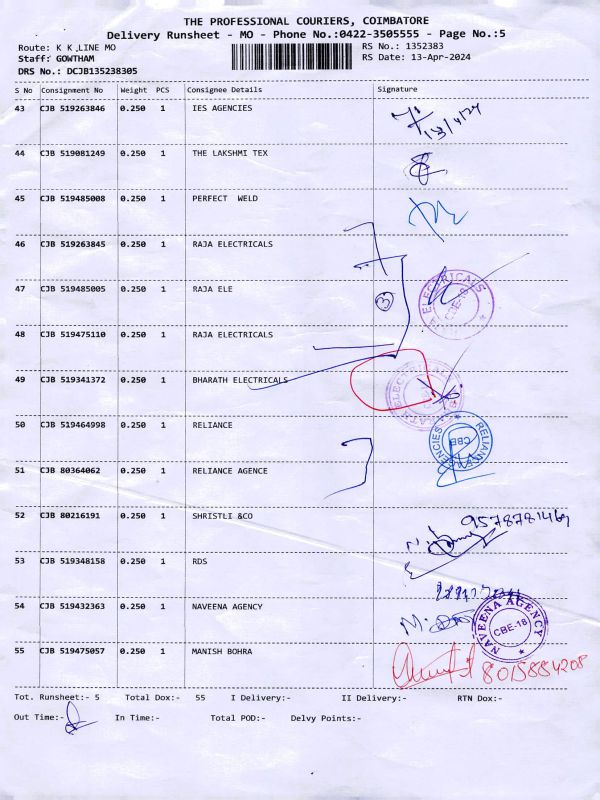 THE PROFESSIONAL COURIERS, COIMBATORE
Delivery Runsheet - MO - Phone No.:0422-3505555 - Page No.:5
Route: K K ,LINE MO RS No.: 1352383
Staff: GOWTHAM RS Date: 13-Apr-2024
DRS No.: DCJB135238305
S No Consignment No Weight PCS Consignee Details Signature
43 CJB 519263846 0.250 1 IES AGENCIES
13/4/24
44 CJB 519081249 0.250 1 THE LAKSHMI TEX
45 CJB 519485008 0.250 1 PERFECT WELD
46 CJB 519263845 0.250 1 RAJA ELECTRICALS
47 CJB 519485005 0.250 1 RAJA ELE 3 ELECTRICALS CBE-18
48 CJB 519475110 0.250 1 RAJA ELECTRICALS
49 CJB 519341372 0.250 1 BHARATH ELECTRICALS
50 CJB 519464998 0.250 1 RELIANCE RELIANCE AGENCIES CBE
51 CJB 80364062 0.250 1 RELIANCE AGENCE
52 CJB 80216191 0.250 1 SHRISTLI &CO 9578781469
53 CJB 519348158 0.250 1 RDS
54 CJB 519432363 0.250 1 NAVEENA AGENCY NAVEENA AGENCY CBE-18
55 CJB 519475057 0.250 1 MANISH BOHRA 8015884208
Tot. Runsheet:- 5 Total Dox:- 55 I Delivery:- II Delivery:- RTN Dox:-
Out Time:- In Time:- Total POD:- Delvy Points:-